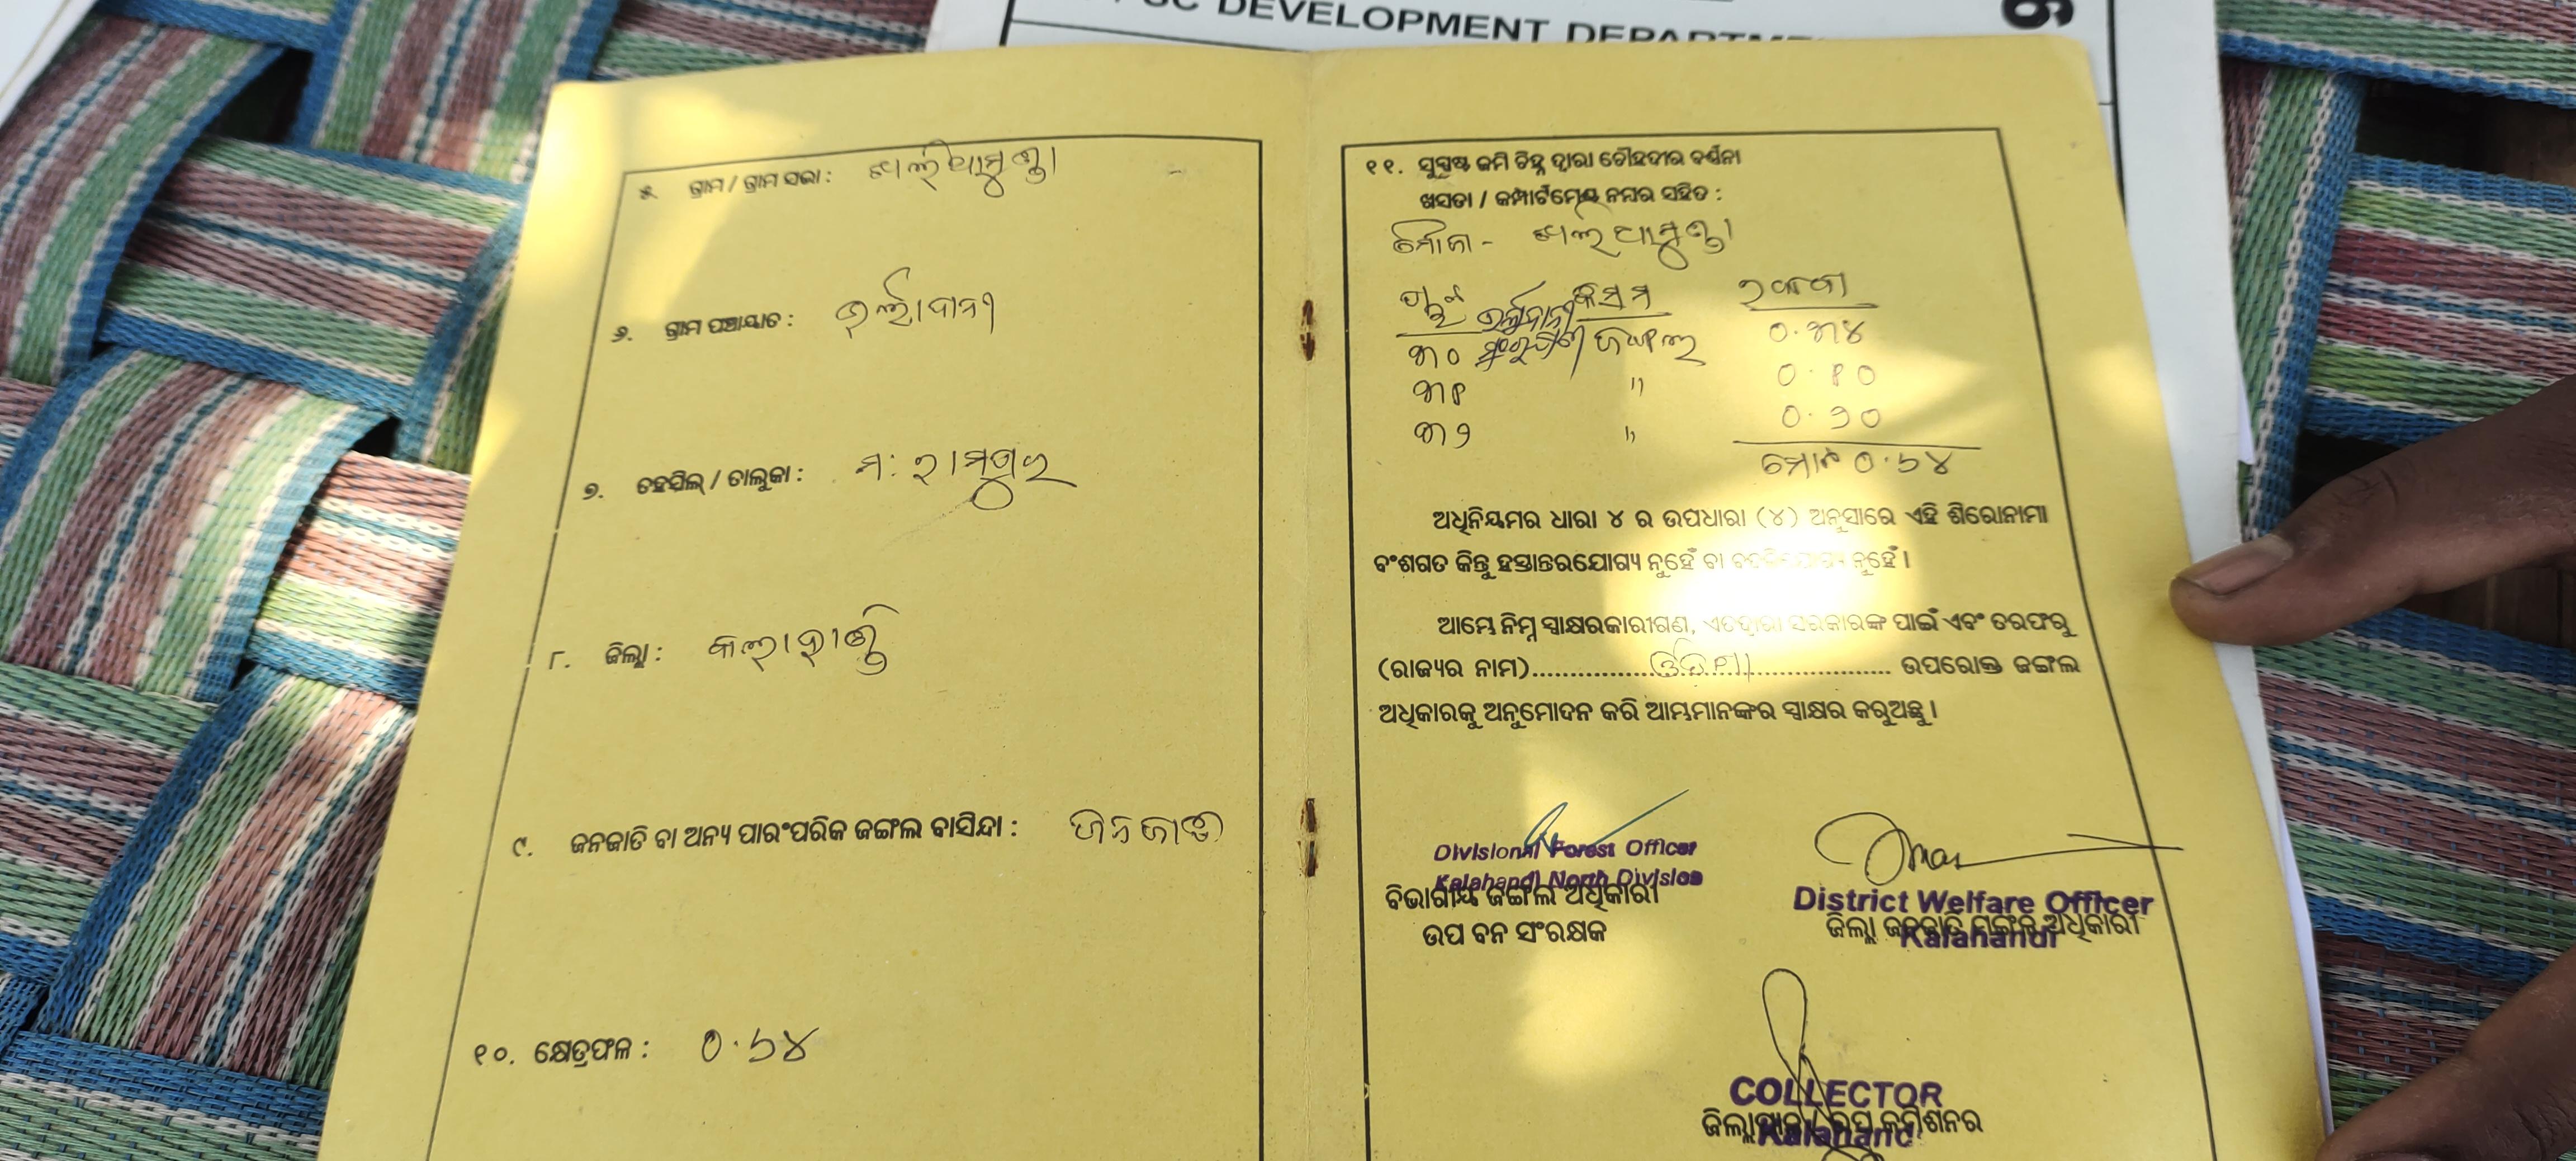 SC DEVELOPMENT DEPARTME
୫. ଗ୍ରାମ / ଗ୍ରାମ ସଭା :
୬. ଗ୍ରାମ ପଞ୍ଚାୟାତ :
୭. ତହସିଲ୍ / ତାଲୁକା : ମ: ରାମପୁର
୮. ଜିଲ୍ଲା : କଳାହାଣ୍ଡି
୯. ଜନଜାତି ବା ଅନ୍ୟ ପାରଂପରିକ ଜଙ୍ଗଲ ବାସିନ୍ଦା : ଜନଜାତି
୧୦. କ୍ଷେତ୍ରଫଳ : ୦.୬୪
୧୧. ସୁସ୍ପଷ୍ଟ ଜମି ଚିହ୍ନ ଦ୍ୱାରା ଚୌହଦୀର ବର୍ଣ୍ଣନା
ଖସଡା / କମ୍ପାର୍ଟମେଣ୍ଟ ନମ୍ବର ସହିତ :
ମୌଜା -
ପ୍ଲଟ କିସମ ରକବା
୩୦ ଜଙ୍ଗଲ ୦.୩୪
୩୧ " ୦.୧୦
୩୨ " ୦.୨୦
ମୋଟ ୦.୬୪
ଅଧିନିୟମର ଧାରା ୪ ର ଉପଧାରା (୪) ଅନୁସାରେ ଏହି ଶିରୋନାମା
ବଂଶଗତ କିନ୍ତୁ ହସ୍ତାନ୍ତରଯୋଗ୍ୟ ନୁହେଁ ବା ନୁହେଁ ।
ଆମ୍ଭେ ନିମ୍ନ ସ୍ୱାକ୍ଷରକାରୀଗଣ, ଏତଦ୍ୱାରା ସରକାରଙ୍କ ପାଇଁ ଏବଂ ତରଫରୁ
(ରାଜ୍ୟର ନାମ)..................ଓଡିଶା.................. ଉପରୋକ୍ତ ଜଙ୍ଗଲ
ଅଧିକାରକୁ ଅନୁମୋଦନ କରି ଆମ୍ଭମାନଙ୍କର ସ୍ୱାକ୍ଷର କରୁଅଛୁ ।
Divisional Forest Officer
Kalahandi North Division
ବିଭାଗୀୟ ଜଙ୍ଗଲ ଅଧିକାରୀ
ଉପ ବନ ସଂରକ୍ଷକ
District Welfare Officer
ଜିଲ୍ଲା ଜନଜାତି ମଙ୍ଗଳ ଅଧିକାରୀ
Kalahandi
COLLECTOR
ଜିଲ୍ଲାପାଳ / ଉପ କମିଶନର
Kalahandi